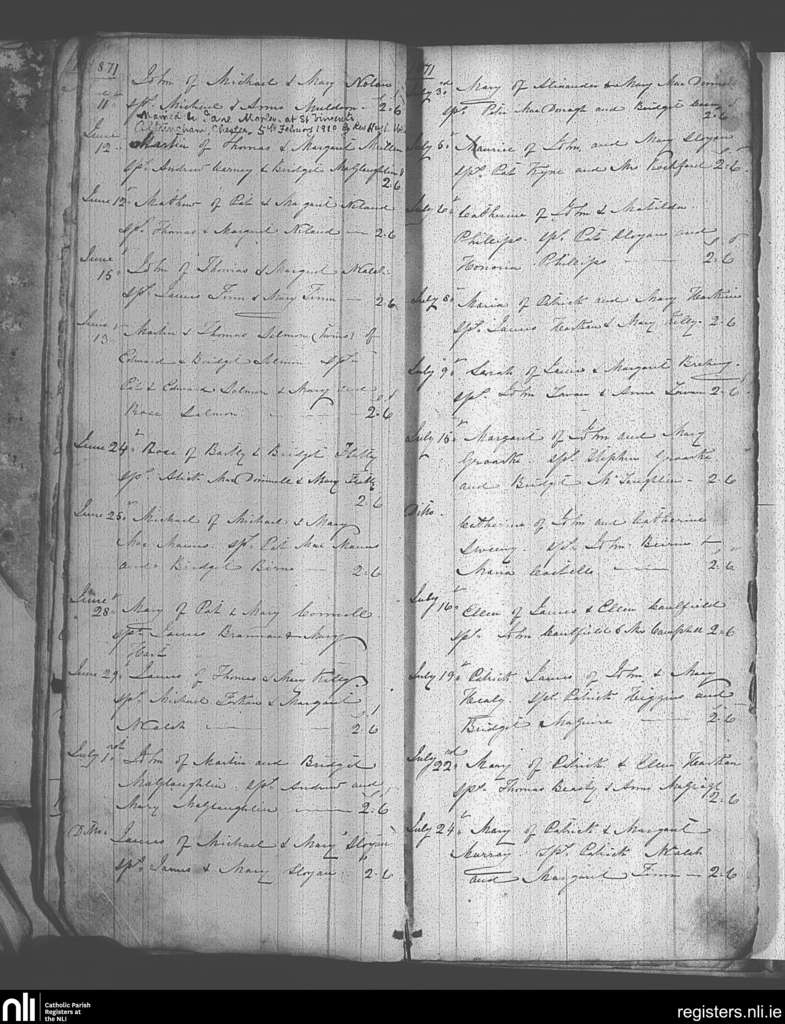 1871
John of Michael & Mary Nolan
11th Spt. Michael & Anne Muldoon - 2.6
Married to Jane at St Vincents
Altrincham, Chester, 5th February 1910 by Rev Hugh
June 12th Martin of Thomas & Margaret
Spt. Andrew & Bridget MacGlaughlin
2.6
June 12th Mathew of Pat & Margaret Niland
Spt. Thomas & Margaret Niland — 2.6
June 15th John of Thomas & Margaret Walsh
Spt. James Finn & Mary Finn — 2.6
June 13th Martin & Thomas Salmon (Twins) of
Edward & Bridget Salmon Spt.
Pat & Edward Salmon & Mary and
Rose Salmon 2.6
June 24th Rose of Bartly & Bridget Flatly
Spt. Mac Donnell & Mary Flatly
2.6
June 25th Michael of Michael & Mary
Mac Manus. Spt. Pat Mac Manus
and Bridget Birne 2.6
June 28th Mary of Pat & Mary Connell
Spt. James Brannan & Mary
Hart
June 29th James of Thomas & Mary Kelly
Spt. Michael & Margaret
Walsh — 2.6
July 1st John of Martin and Bridget
MacGlaughlin. Spt. Andrew and
Mary MacGlaughlin — 2.6
Ditto. James of Michael & Mary Sloyan
Spt. James & Mary Sloyan. 2.6
71
July 3rd Mary of Alixander & Mary Mac Donnell
Spt. Peter MacDonagh and Bridget
2.6
July 6th Maurice of John and Mary Sloyan
Spt. Pat Fryne and Mrs Rochford 2.6
July 6th Catherine of John & Matilda
Phillips. Spt. Pat Sloyan and
Honoria Phillips — 2.6
July 8th Maria of Patrick and Mary
Spt. James & Mary Kelly. 2.6
July 9th Sarah of James & Margaret
Spt. John & Anne 2.6
July 15th Margaret of John and Mary
Groarke. Spt. Stephen Groarke
and Bridget McLaughlin - 2.6
Ditto. Catherine of John and Catherine
Sweeny. Spt. John Beirne &
Maria Costello — 2.6
July 16th Ellen of James & Ellen Caulfield
Spt. John Caulfield & Mrs Campbell 2.6
July 19th Patrick James of John & Mary
Healy. Spt. Patrick Higgins and
Bridget Maguire — 2.6
July 22nd Mary of Patrick & Ellen
Spt. Thomas Beasty & Anne
2.6
July 24th Mary of Patrick & Margaret
Murray. Spt. Patrick Walsh
and Margaret Finn — 2.6
nli
Catholic Parish
Registers at
the NLI
registers.nli.ie